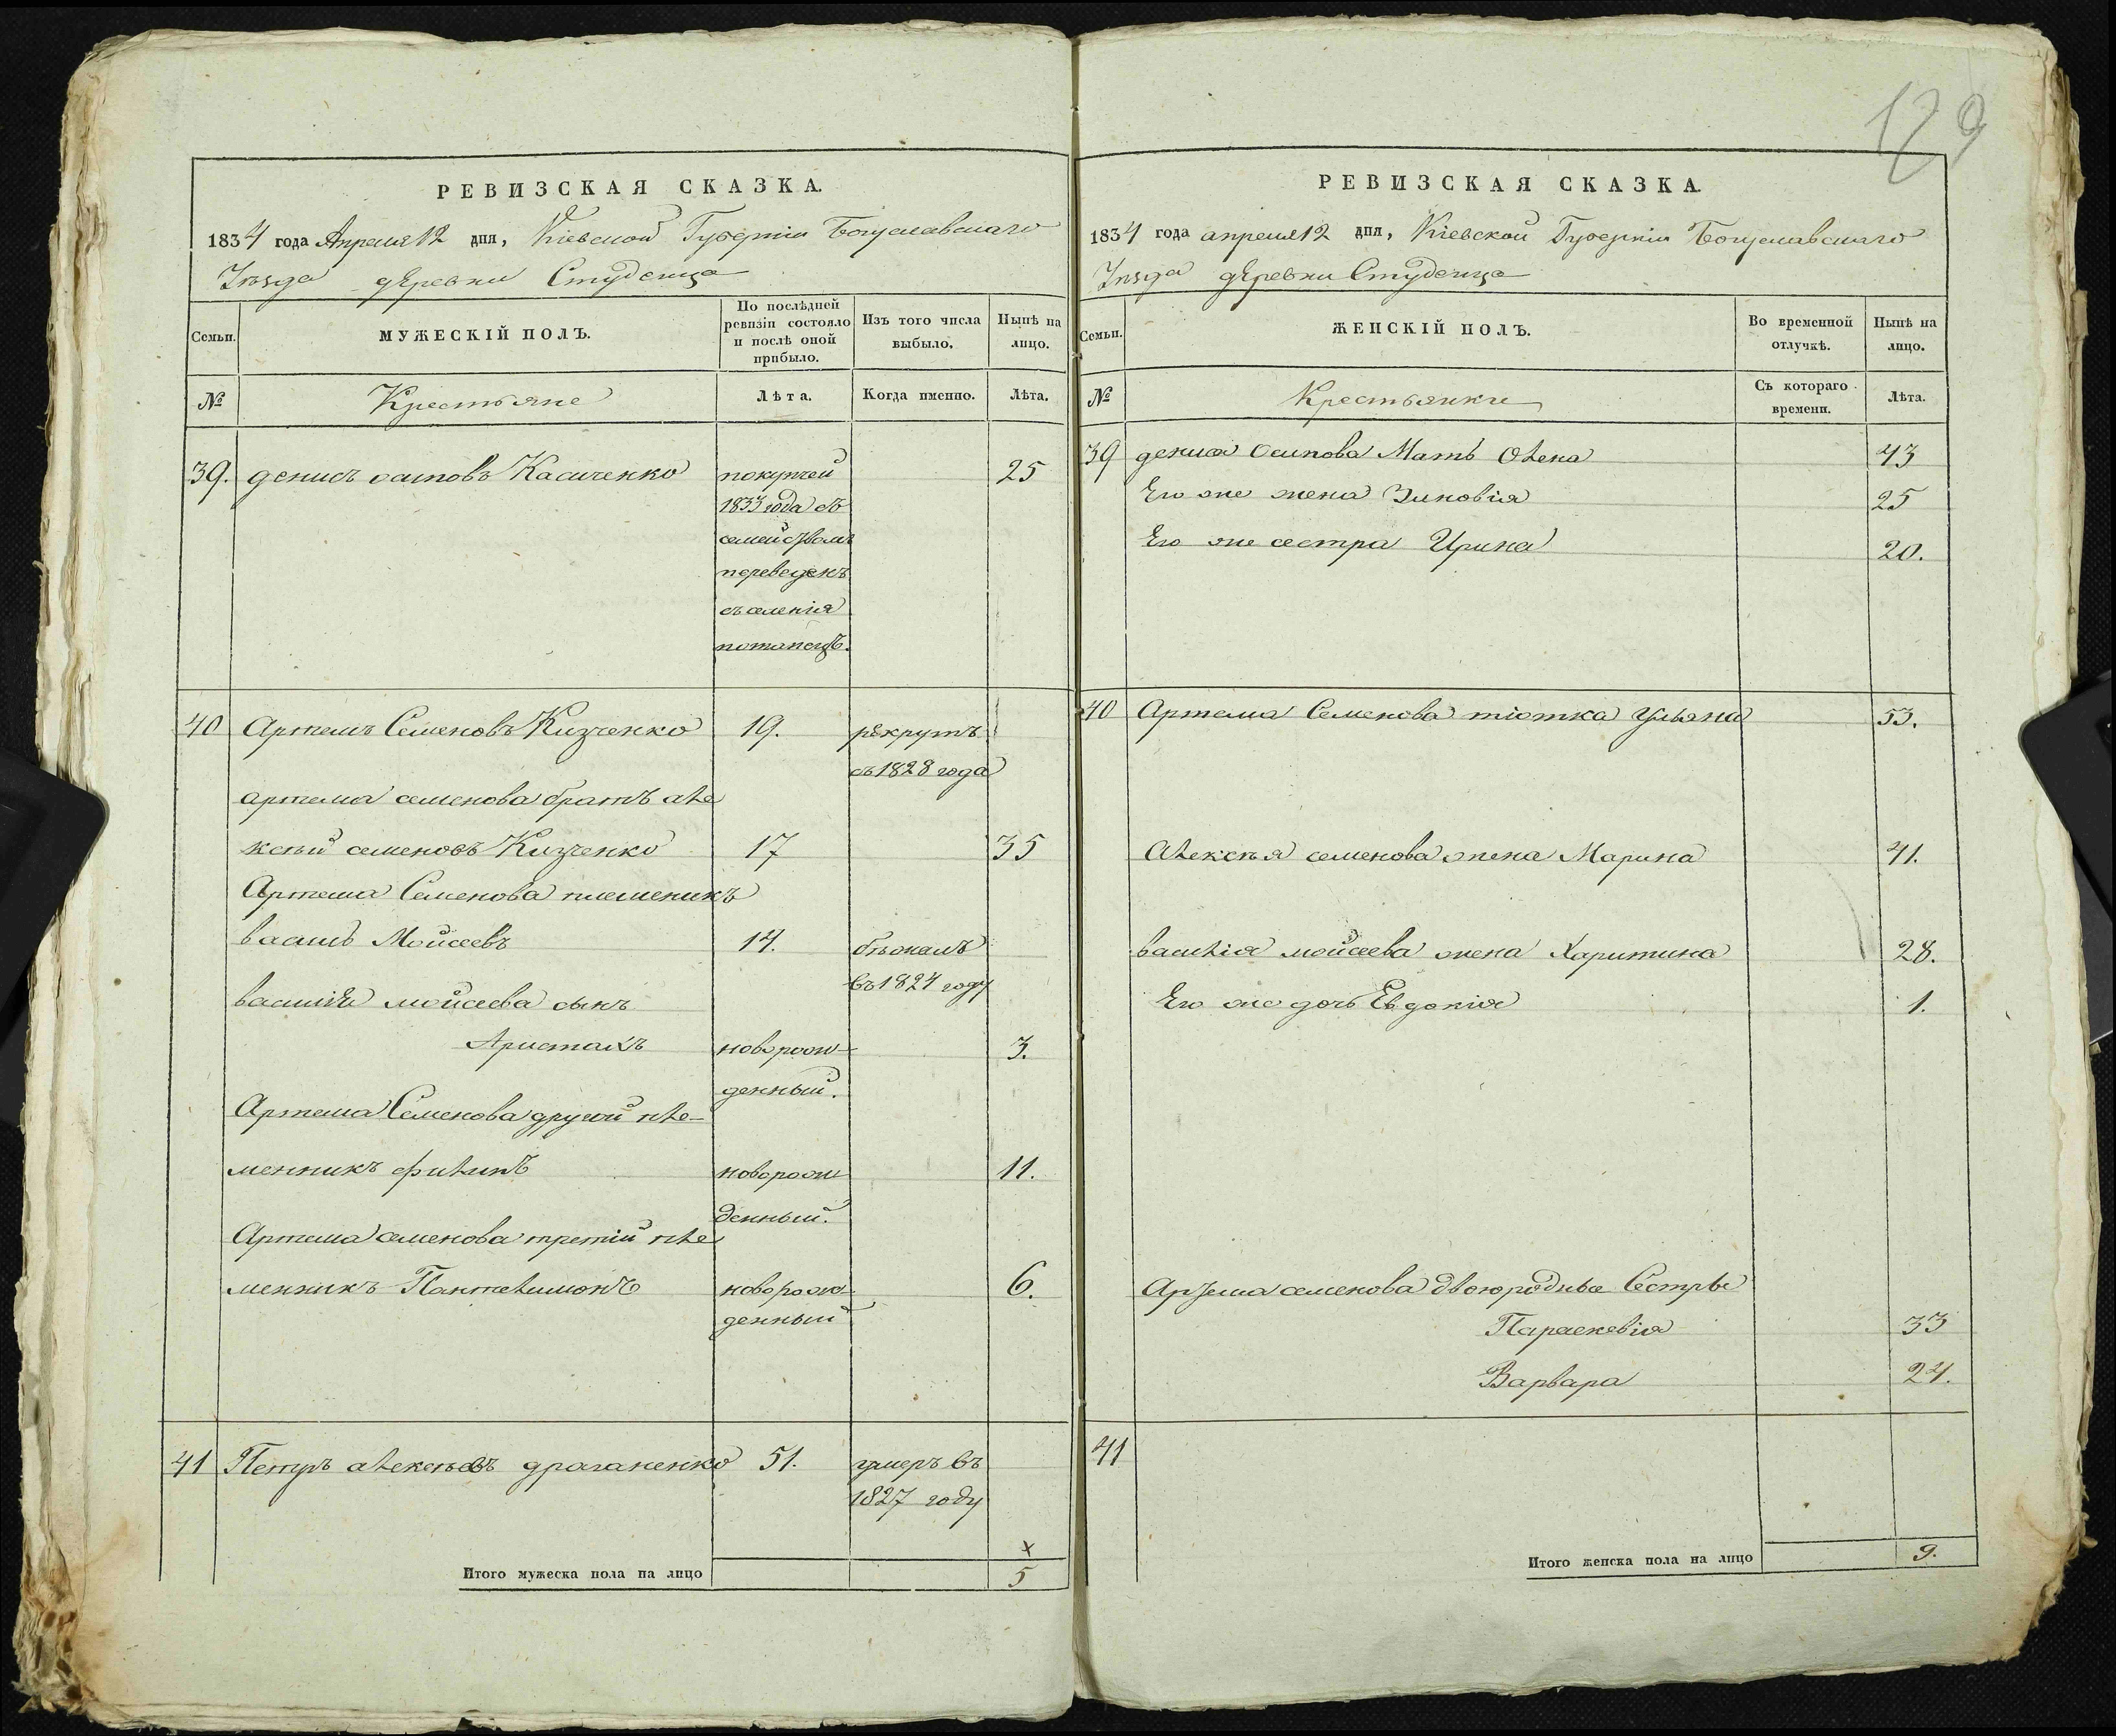 129
РЕВИЗСКАЯ СКАЗКА.
1834 года Апреля 12 дня, Кіевской Губерніи Богуславскаго
Уѣзда деревни Студенца
Семьи.
МУЖЕСКІЙ ПОЛЪ.
По послѣдней ревизіи состояло и послѣ оной прибыло.
Изъ того числа выбыло.
Нынѣ на лицо.
№
Крестьяне
Лѣта.
Когда именно.
Лѣта.
39. денисъ осиповъ Касиченко 25
покупчей
1833 года съ
семействомъ
переведенъ
съ селенія
потапецъ.
40 Артемъ Семеновъ Кизченко 19. рекрутъ
съ 1828 года
артема семенова братъ але
ксѣй семеновъ Кизченко 17 35
Артема Семенова племеникъ
василь Мойсеевъ 14. бѣжалъ
въ 1824 году
василія мойсеева сынъ
Аристахъ новорож- 3.
денный.
Артема Семенова другой пле-
менникъ филипъ новорож 11.
денный.
Артема семенова третій пле
менникъ Пантелимонъ новорож- 6.
денный
41 Петръ алексѣевъ драганенко 51. умеръ въ
1827 году
Итого мужеска пола на лицо 5
РЕВИЗСКАЯ СКАЗКА.
1834 года апреля 12 дня, Кіевской Губерніи Богуславскаго
Уѣзда деревни Студенца
Семьи.
ЖЕНСКІЙ ПОЛЪ.
Во временной отлучкѣ.
Нынѣ на лицо.
№
Крестьянки
Съ котораго времени.
Лѣта.
39 дениса Осипова Мать Олена 43
Его же жена Зиновія 25
Его же сестра Ирина 20.
40 Артема Семенова тіотка Ульяна 53.
Алексѣя семенова жена Марина 41.
василія мойсеева жена Харитина 28.
Его же дочь Евдокія 1.
Артема семенова двоюродные Сестры
Параскевія 33
Варвара 24.
41
Итого женска пола на лицо 9.